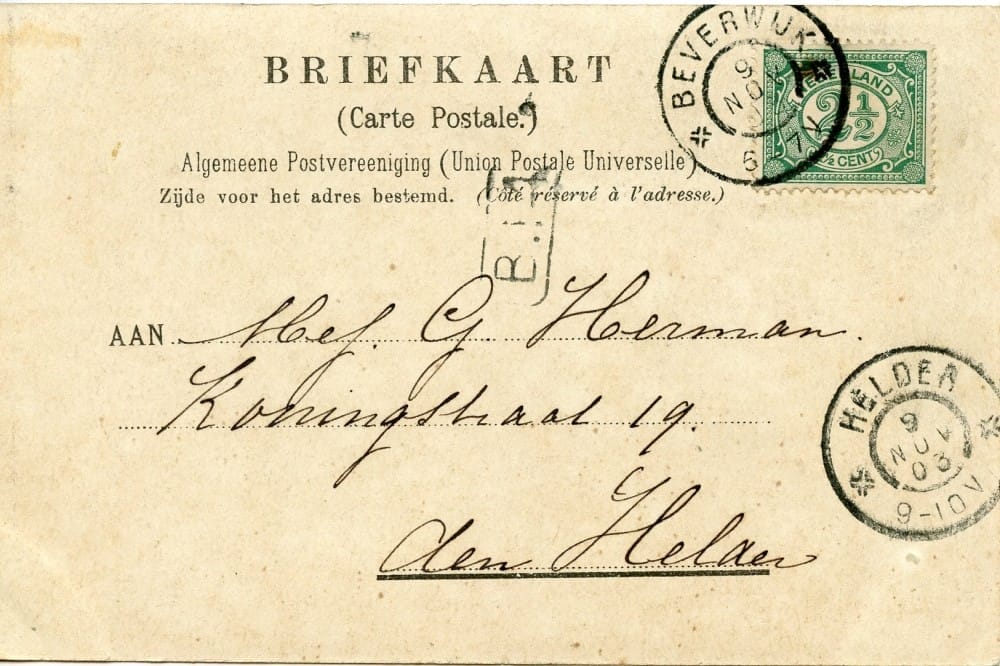 BRIEFKAART
(Carte Postale.)
Algemeene Postvereeniging (Union Postale Universelle)
Zijde voor het adres bestemd. (Côté réservé à l'adresse.)
BEVERWIJK
9 NOV
6-7V
NEDERLAND
2 1/2
2½ CENT
AAN Mej. G. Herman.
Koningstraat 19.
den Helder
HELDER
9
NOV
03
9-10V